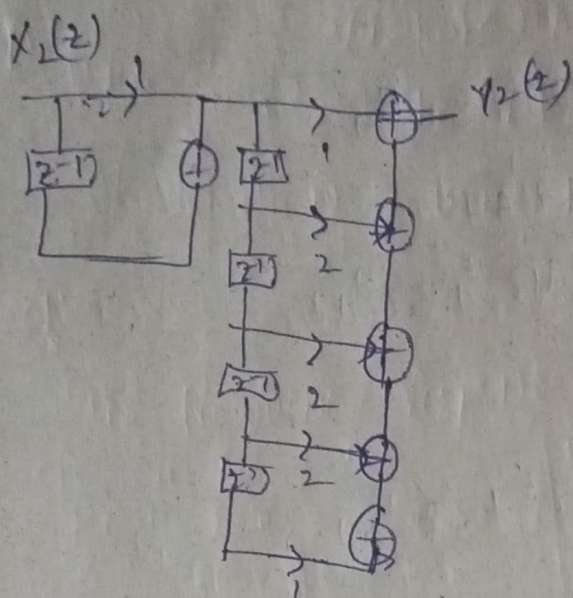 X₂(z)
1
Y₂(z)
z-1
z-1
1
z-1
2
z-1
2
z-1
2
1